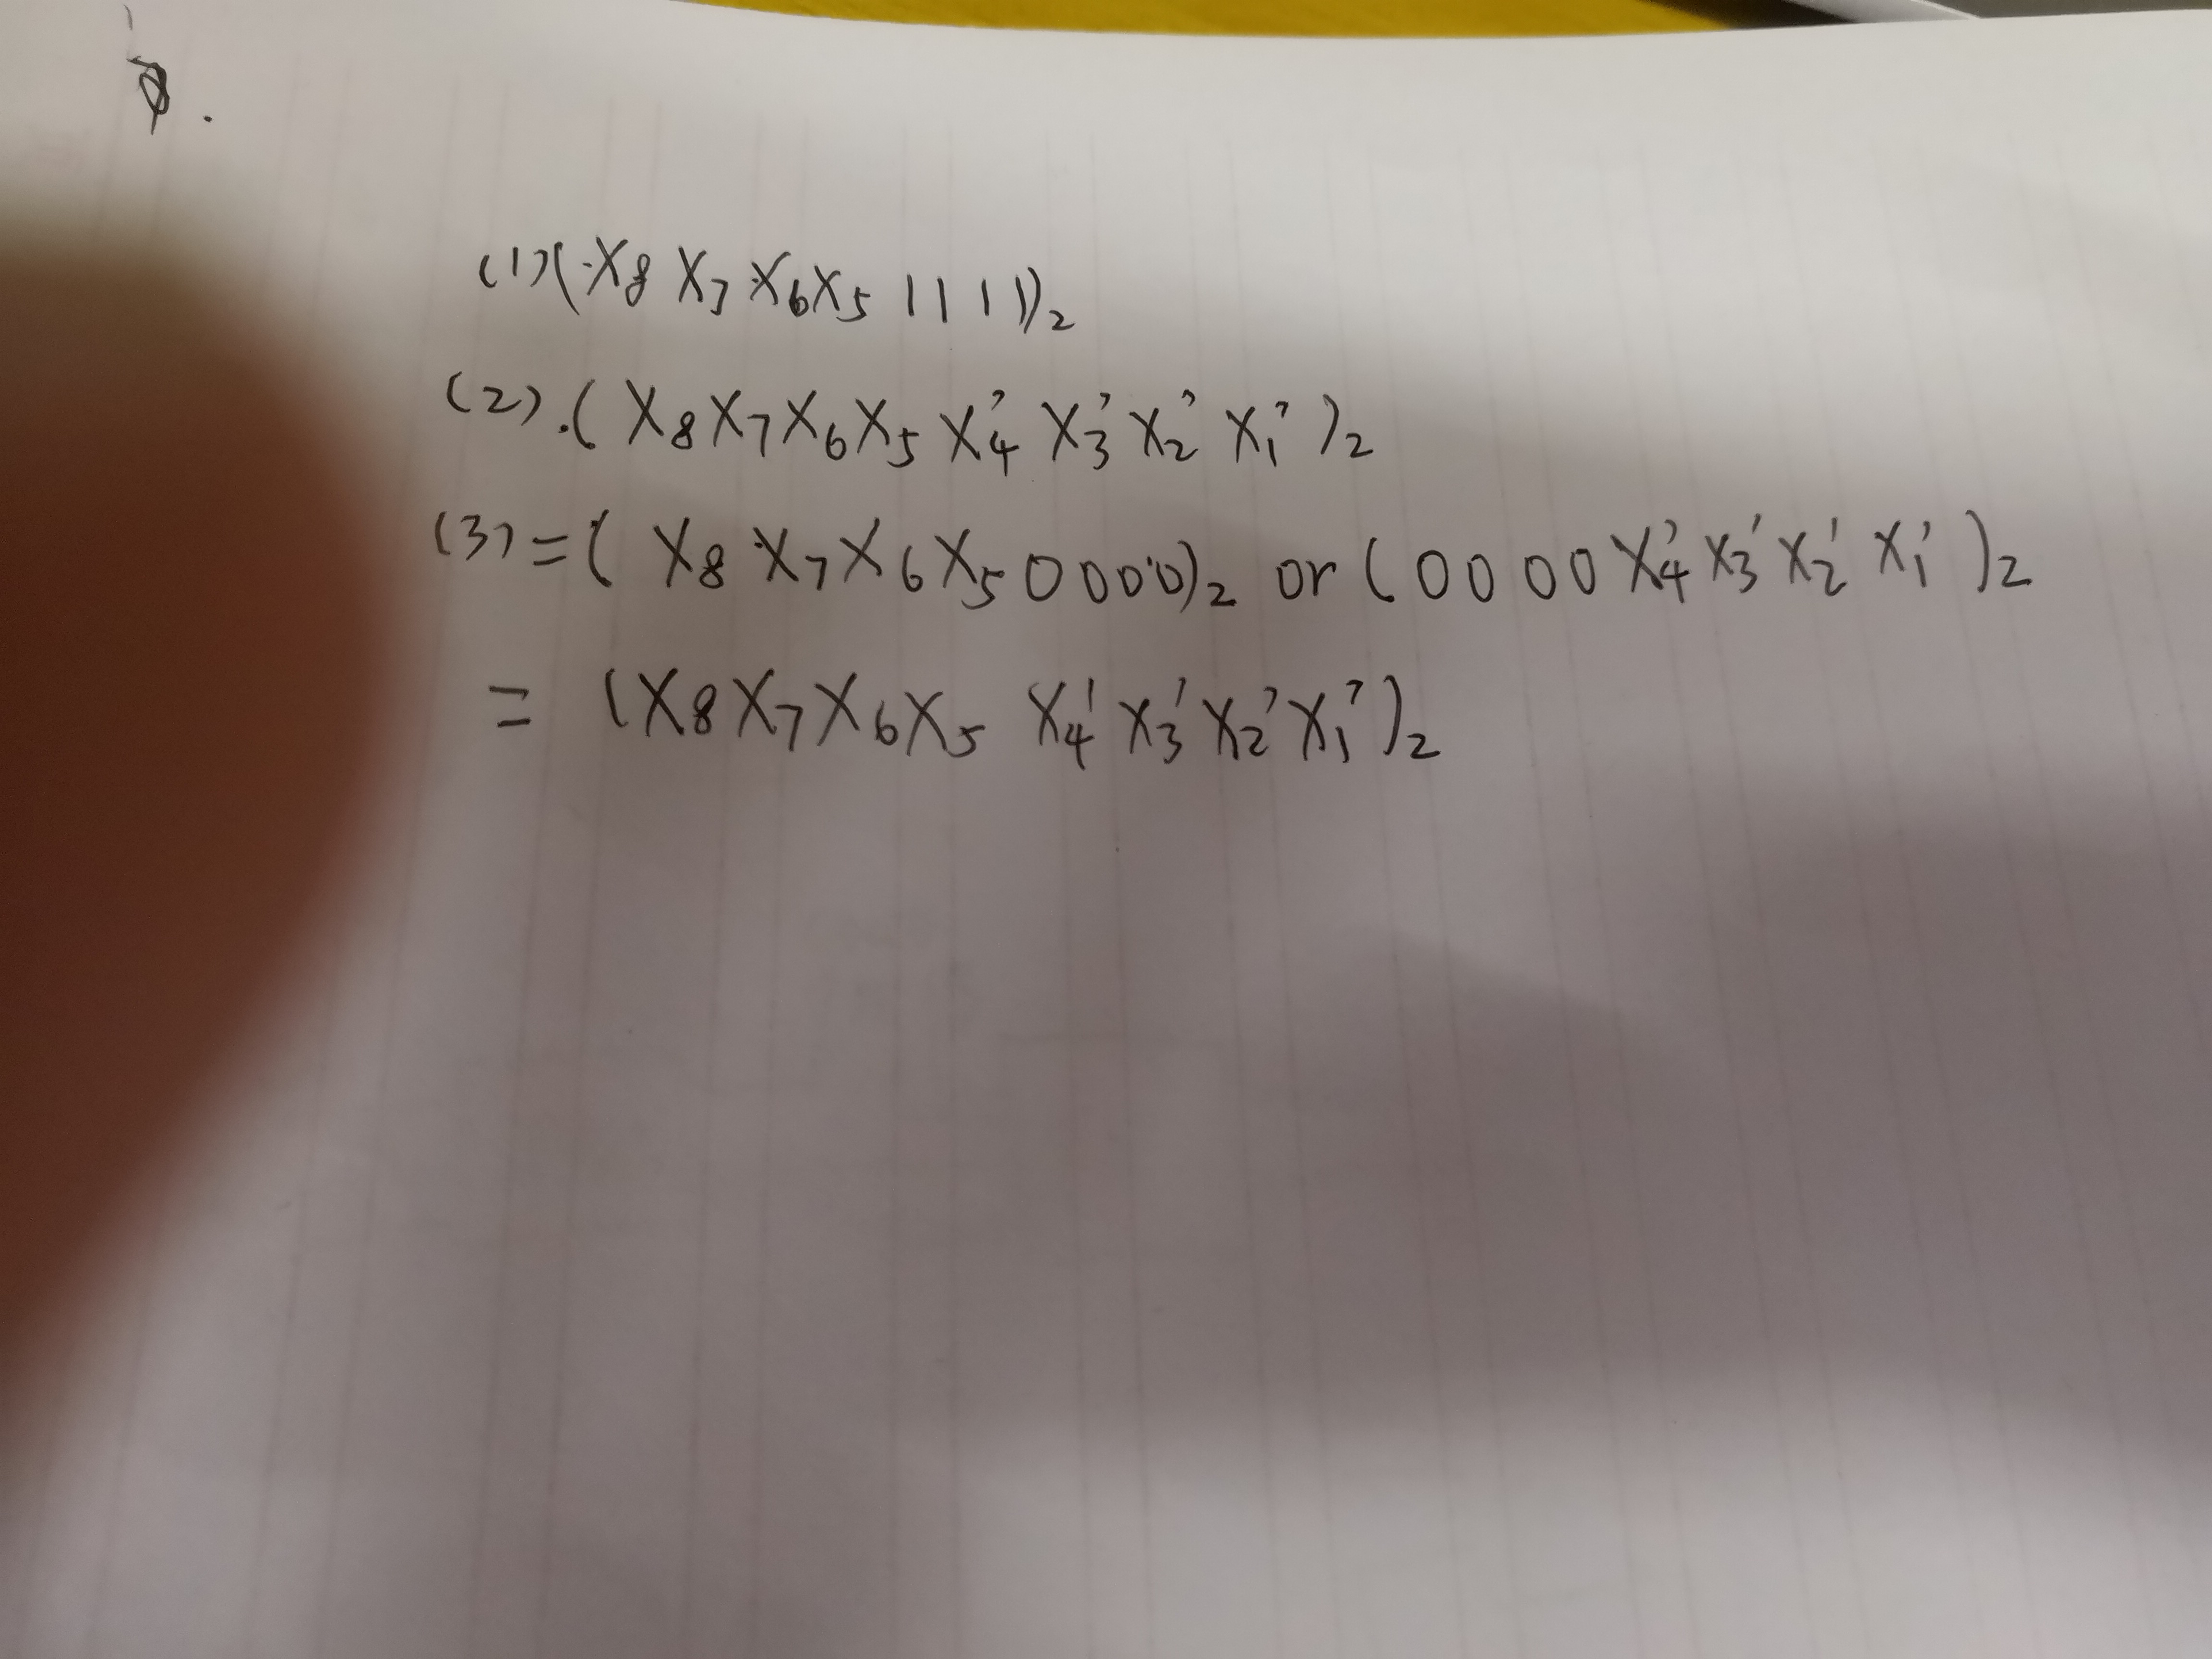 (1) (X₈ X₇ X₆ X₅ 1 1 1 1)₂
(2). (X₈ X₇ X₆ X₅ X₄' X₃' X₂' X₁')₂
(3) = (X₈ X₇ X₆ X₅ 0 0 0 0)₂ or (0 0 0 0 X₄' X₃' X₂' X₁')₂
= (X₈ X₇ X₆ X₅ X₄' X₃' X₂' X₁')₂